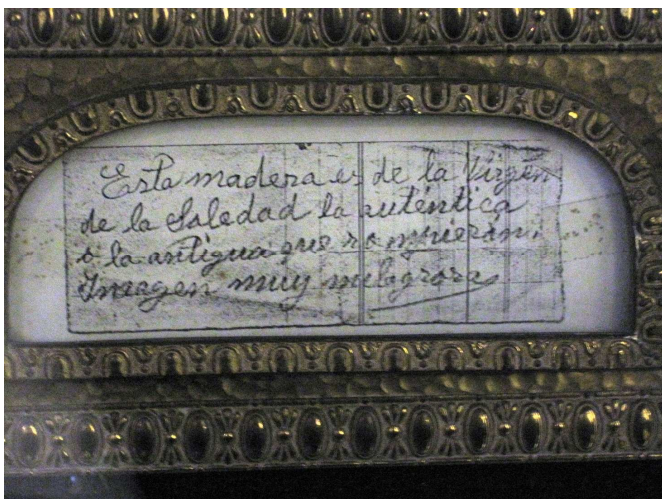 Esta madera es de la Virgen
de la Soledad la auténtica
o la antigua que rompieron.
Imagen muy milagrosa